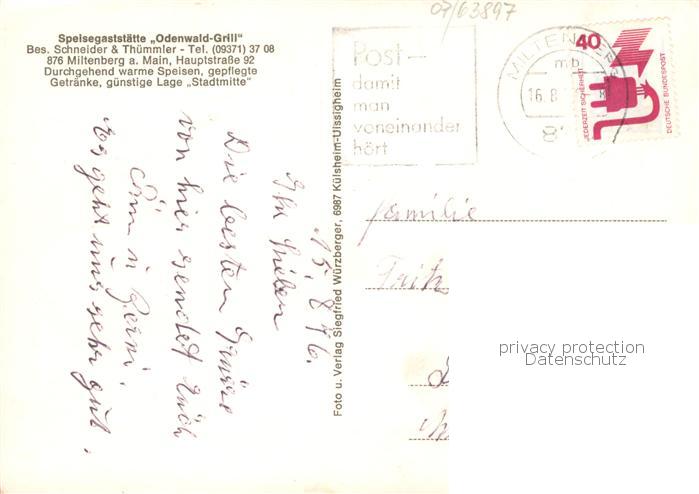 07/63897
Speisegaststätte „Odenwald-Grill"
Bes. Schneider & Thümmler - Tel. (09371) 37 08
876 Miltenberg a. Main, Hauptstraße 92
Durchgehend warme Speisen, gepflegte
Getränke, günstige Lage „Stadtmitte"
Post –
damit
man
voneinander
hört
MILTENBERG
mb
16.8.
40
JEDERZEIT SICHERHEIT
DEUTSCHE BUNDESPOST
15. 8. 76.
Ihr Lieben
Die besten Grüße
von hier sendet Euch
Es geht uns sehr gut.
Foto u. Verlag Siegfried Würzberger, 6987 Külsheim-Uissigheim
Familie
privacy protection
Datenschutz